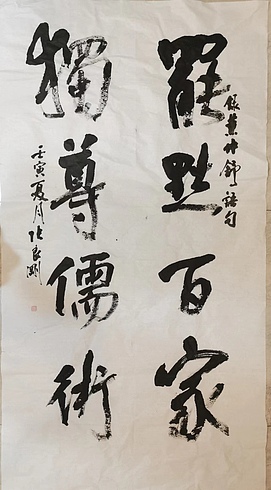 錄董仲舒語句
罷黜百家
獨尊儒術
壬寅夏月